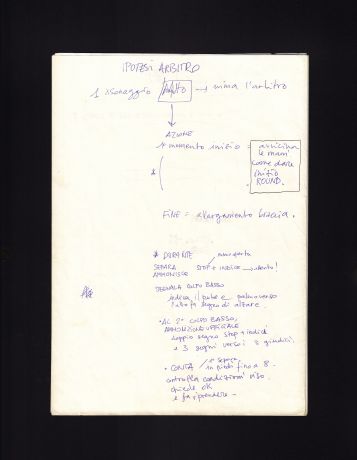 IPOTESI ARBITRO
1 → mima l'arbitro
AZIONE
* momento inizio = avvicina
le mani
come dare
inizio
ROUND.
*
FINE = allargamento braccia.
* DURANTE
SEPARA
AMMONISCE STOP + indice
SEGNALA COLPO BASSO
indica il pube e palmo verso
l'altro fa segno di alzare
• AL 2° COLPO BASSO,
AMMONIZIONE UFFICIALE
doppio segno stop + indice
e 3 segni verso i 3 giudici.
• CONTA + separa
in piedi fino a 8 -
controlla condizioni viso.
chiede OK
e fa riprendere -